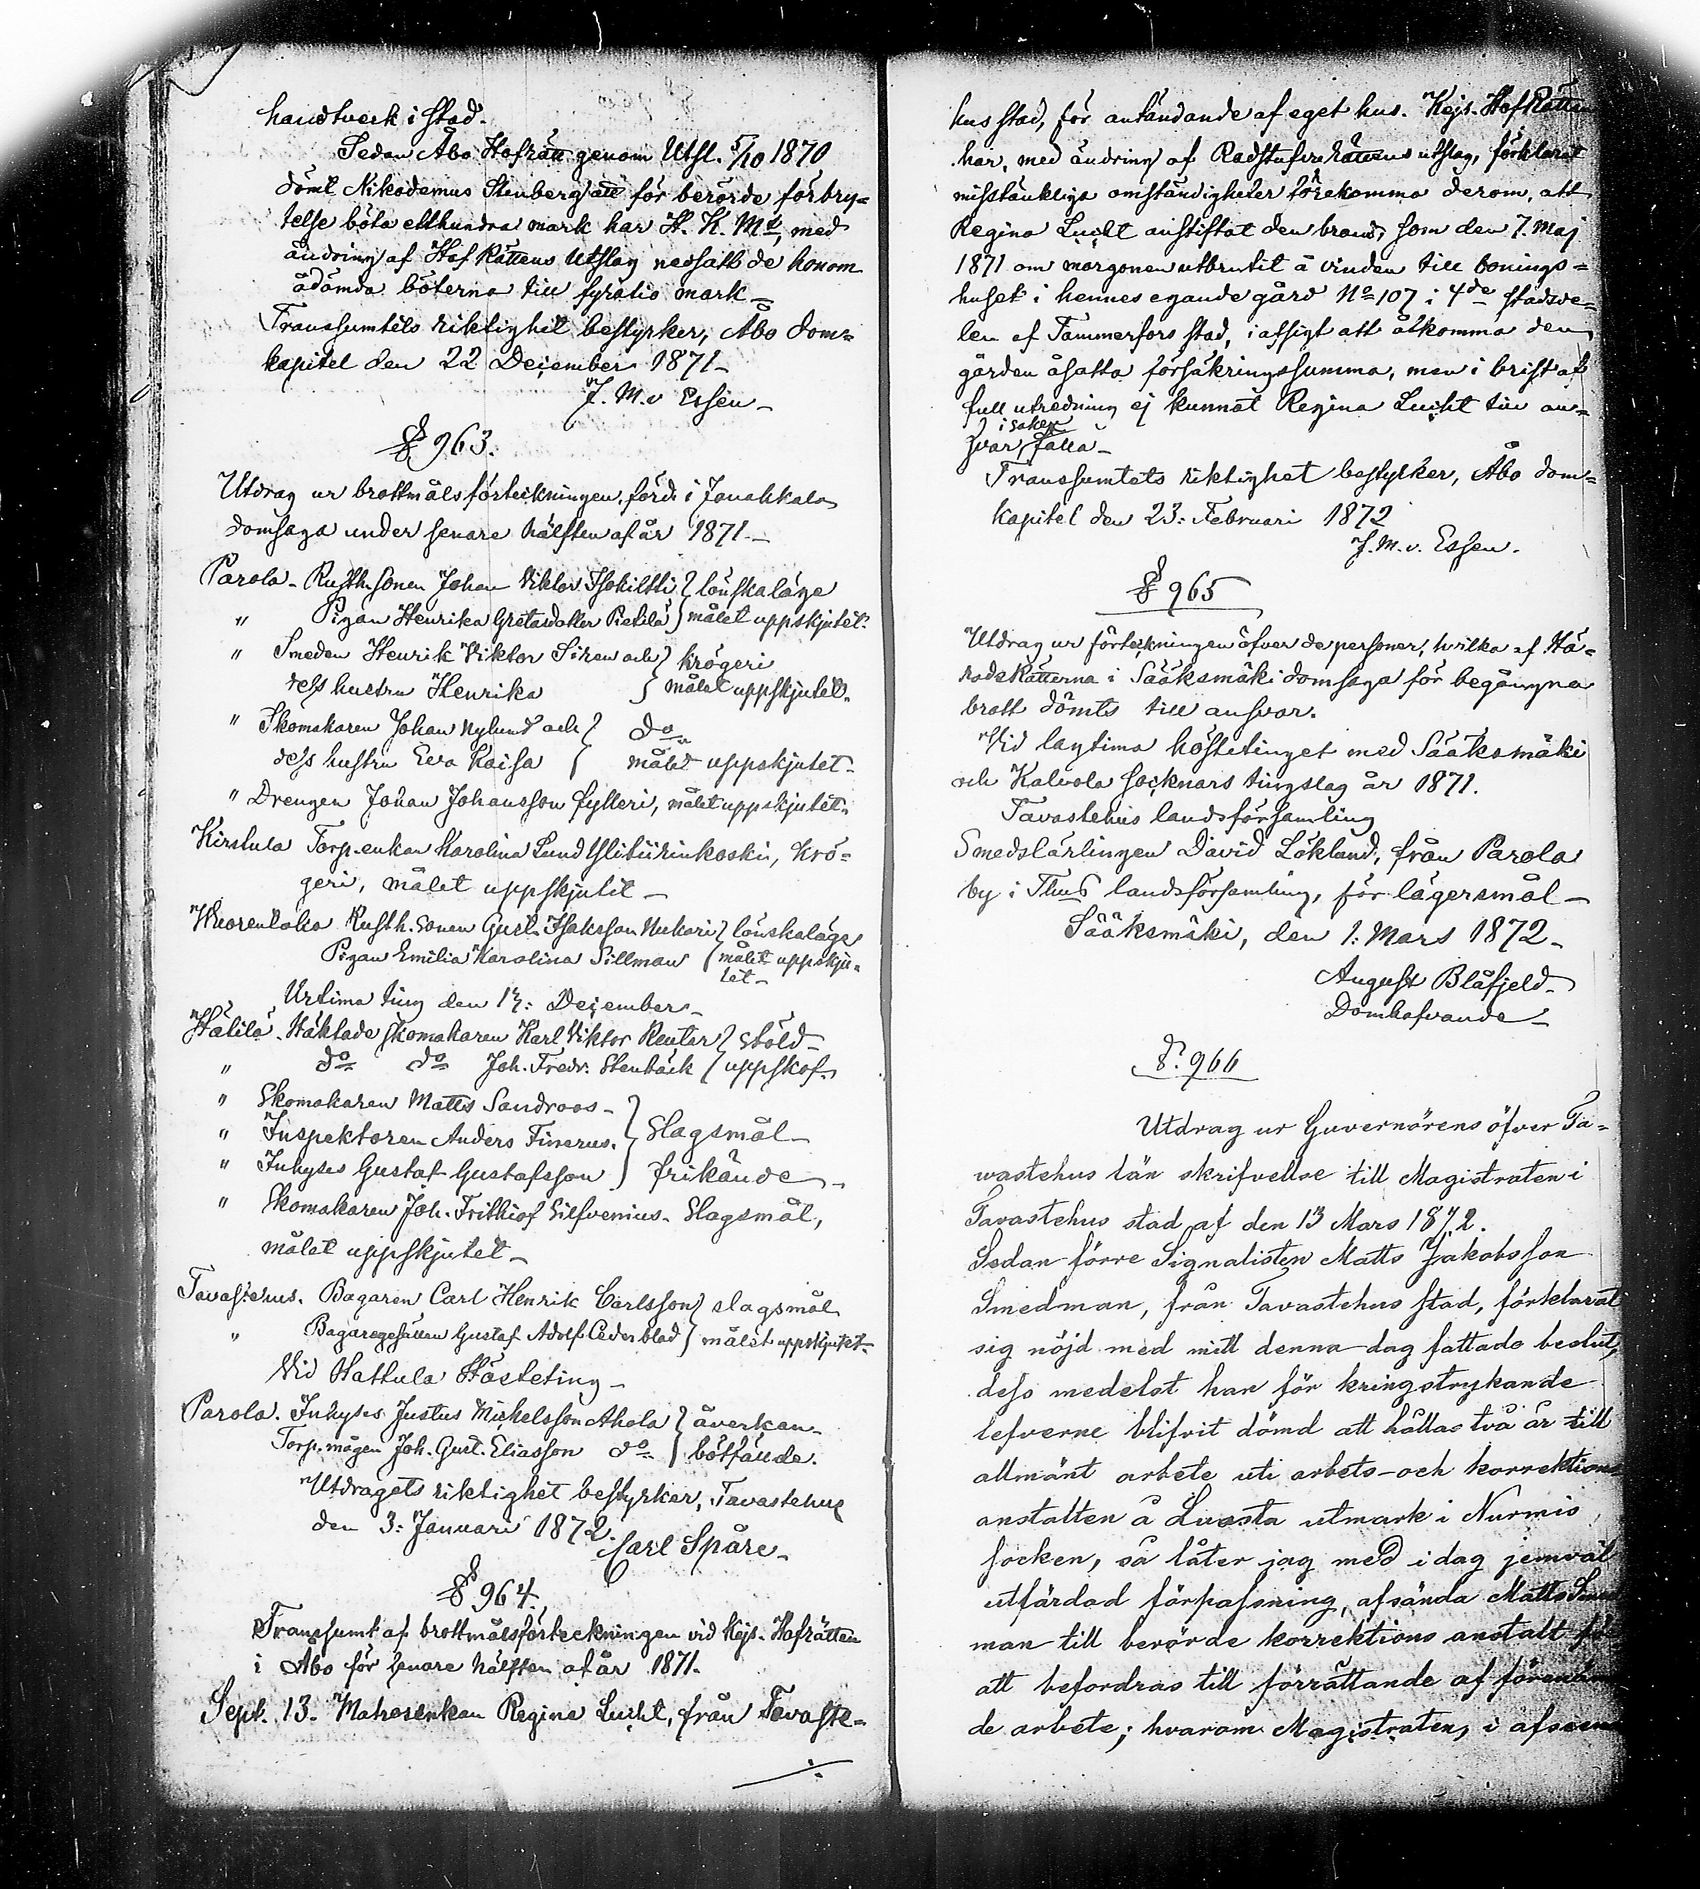 handtverk i stad.
Sedan Åbo Hofrätt genom Utsl. 5/10 1870
dömt Nikodemus Stenberg att för berörde förbry=
telse böta etthundra mark har H. K. Mt, med
ändring af Hof Rättens Utslag nedsatt de honom
ådömda böterna till fyratio mark_
Transumtets riktighet bestyrker, Åbo dom=
kapitel den 22 December 1871_
J. M. v Essen_
§ 963.
Utdrag ur brottmålsförteckningen, förd i Janakkala
domsaga under senare hälften af år 1871._
Parola_ Rusth. sonen Johan Viktor Isokiltti } lönskaläge
" Pigan Henrika Gretasdotter Pietilä } målet uppskjutet.
" Smeden Henrik Viktor Siren och } krögeri
dess hustru Henrika } målet uppskjutet.
" Skomakaren Johan Nylund och } do
dess hustru Eva Kaisa { målet uppskjutet_
" Drengen Johan Johansson fylleri, målet uppskjutet.
Kirstula Torp. enkan Karolina Lund, krö=
geri, målet uppskjutit_
Wuorentaka Rusth. sonen Gust. Isaksson Nukari } lönskaläge
Pigan Emilia Karolina Sillman { målet uppskju=
tet_
Urtima ting den 17: December_
Hätilä. Häktade Skomakaren Karl Viktor Reuter } stöld_
" do do Joh. Fredr. Stenbäck { uppskof.
" Skomakaren Matts Sandroos_
" Inspektoren Anders Finerus. } Slagsmål_
" Inhyses Gustaf Gustafsson } frikände_
" Skomakaren Joh. Frithiof Silfvenius. Slagsmål,
målet uppskjutet_
Tavastehus. Bagaren Carl Henrik Carlsson } slagsmål
" Bagaregesällen Gustaf Adolf Cederblad } målet uppskjutet_
Vid Hattula Hösteting_
Parola. Inhyses Justus Michelsson Ahola } åverkan_
Torp. mågen Joh. Gust. Eliasson do } bötfände.
Utdragets riktighet bestyrker, Tavastehus
den 3: Januari 1872.
Carl Spåre_
§ 964.
Transumt af brottmålsförteckningen vid Kejs. Hofrätten
i Åbo för senare hälften af år 1871.
Sept. 13. Matrosenkan Regina Lucht, från Tavaste=
./.
hus stad, för antändande af eget hus. Kejs. Hof Rätten
har, med ändring af Rådstufvu Rättens utslag, förklarat
misstänkliga omständigheter förekomma derom, att
Regina Lucht anstiftat den brand, som den 7. Maj
1871 om morgonen utbrutit å vinden till bonings=
huset i hennes egande gård No 107 i 4de stadsde=
len af Tammerfors stad, i afsigt att åtkomma den
gården åsatta försäkringssumma, men i brist af
full utredning ej kunnat Regina Lucht till an=
i saken
svar fälla_
Transumtets riktighet bestyrker, Åbo dom=
kapitel den 23: Februari 1872
J. M. v. Essen.
§ 965
Utdrag ur förteckningen öfver de personer, hvilka af Hä=
radsrätterna i Sääksmäki domsaga för begångna
brott dömts till ansvar.
Vid lagtima höstetinget med Sääksmäki
och Kalvola socknars tingslag år 1871.
Tavastehus landsförsamling
Smedslärlingen David Lökland, från Parola
by i Thus landsförsamling, för lägersmål_
Sääksmäki, den 1: Mars 1872_
August Blåfjeld_
Domhafvande_
§. 966
Utdrag ur Guvernörens öfver Ta=
wastehus län skrifvelse till Magistraten i
Tavastehus stad af den 13 Mars 1872.
Sedan förre Signalisten Matts Jakobsson
Smedman, från Tavastehus stad, förklarat
sig nöjd med mitt denna dag fattade beslut,
dess medelst han för kringstrykande
lefverne blifvit dömd att hållas två år till
allmänt arbete uti arbets- och korrektions
anstalten å Luasta utmark i Nurmis
socken, så låter jag med i dag jemväl
utfärdad förpassning, afsända Matts Smed
man till berörde korrektions anstalt för
att befordras till förrättande af förenäm
de arbete; hvarom Magistraten, i afseen